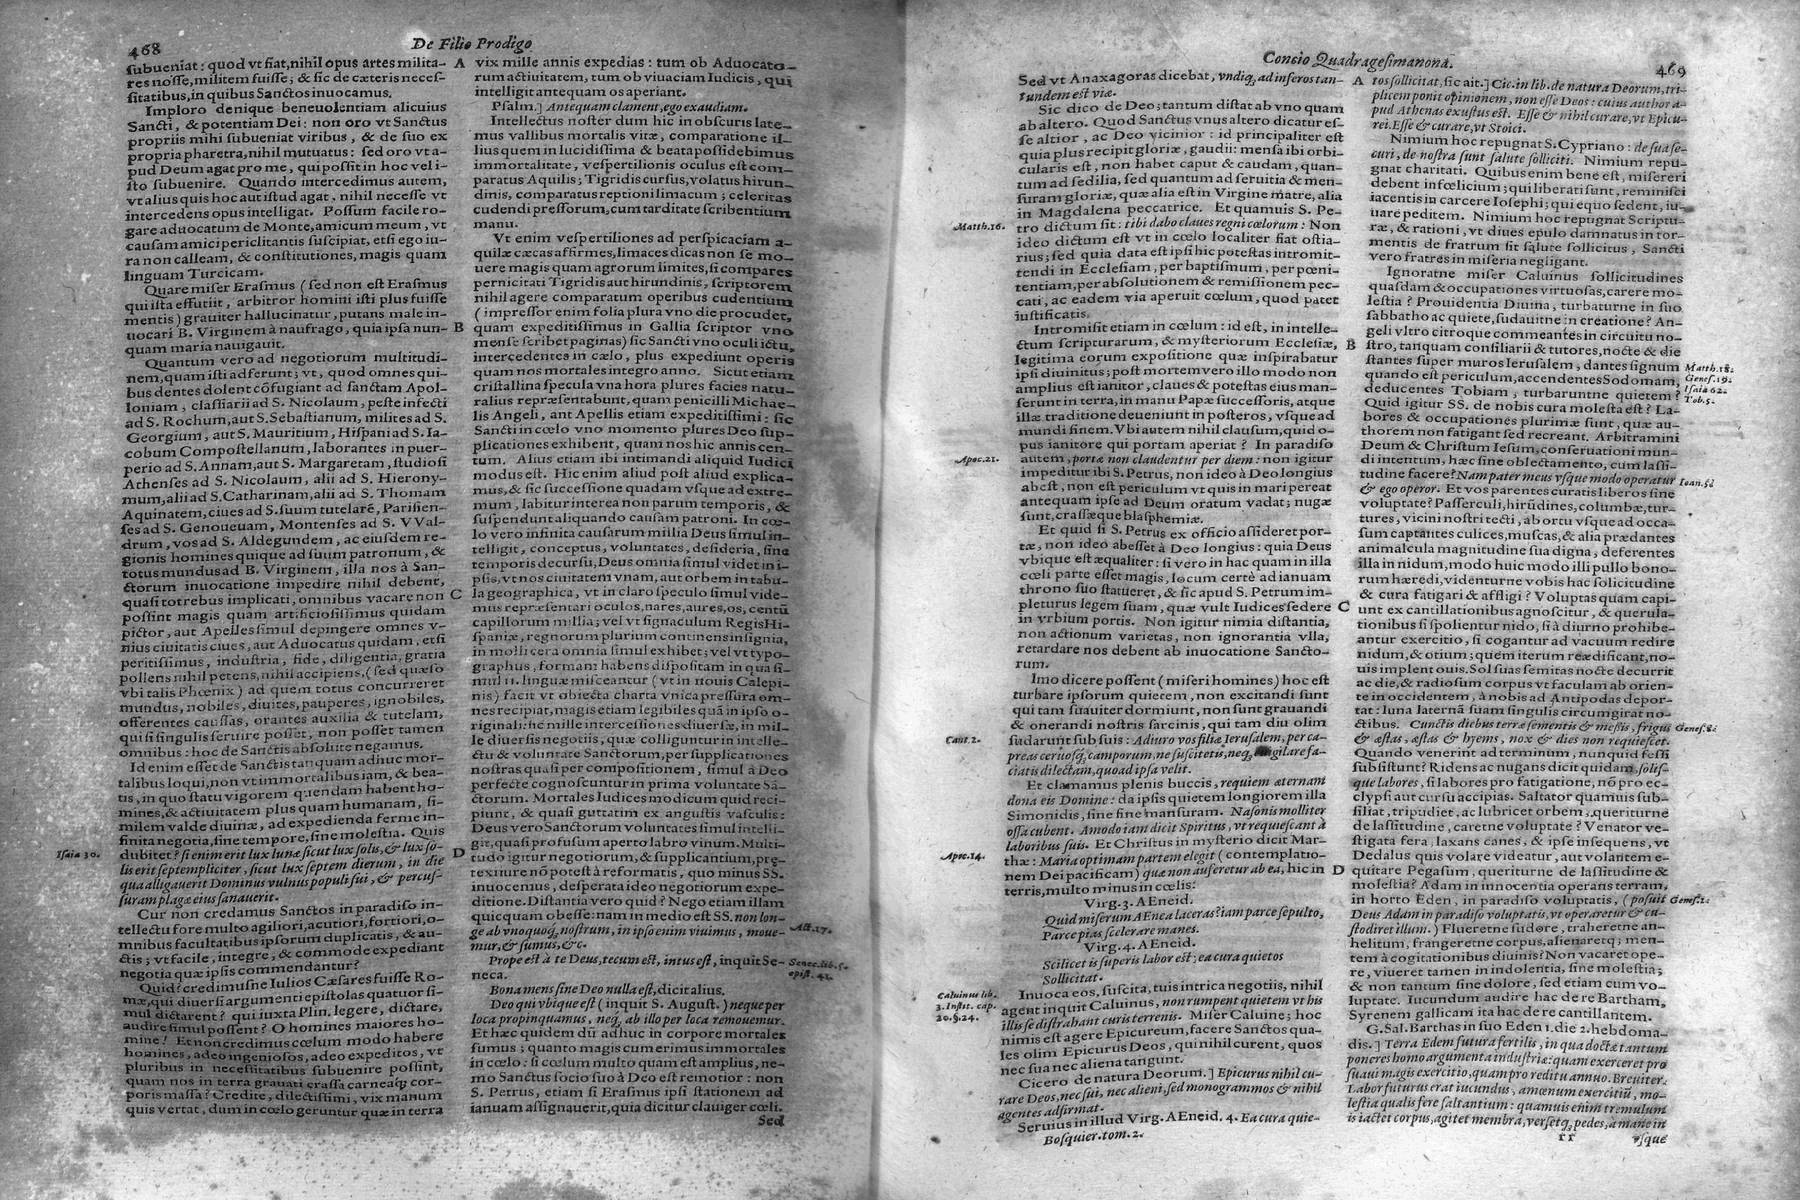 468
De Filio Prodigo
subueniat: quod vt fiat, nihil opus artes milita-
res nosse, militem fuisse; & sic de cæteris neces-
sitatibus, in quibus Sanctos inuocamus.
Imploro denique beneuolentiam alicuius
Sancti, & potentiam Dei: non oro vt Sanctus
propriis mihi subueniat viribus, & de suo ex
propria pharetra, nihil mutuatus: sed oro vt a-
pud Deum agat pro me, qui possit in hoc vel i-
sto subuenire. Quando intercedimus autem,
vt alius quis hoc aut istud agat, nihil necesse vt
intercedens opus intelligat. Possum facile ro-
gare aduocatum de Monte, amicum meum, vt
causam amici periclitantis suscipiat, etsi ego iu-
ra non calleam, & constitutiones, magis quam
linguam Turcicam.
Quare miser Erasmus (sed non est Erasmus
qui ista effutiit, arbitror homini isti plus fuisse
mentis) grauiter hallucinatur, putans male in-
uocari B. Virginem à naufrago, quia ipsa nun-
quam maria nauigauit.
Quantum vero ad negotiorum multitudi-
nem, quam isti adferunt; vt, quod omnes qui-
bus dentes dolent cōfugiant ad sanctam Apol-
loniam, classiarii ad S. Nicolaum, peste infecti
ad S. Rochum, aut S. Sebastianum, milites ad S.
Georgium, aut S. Mauritium, Hispani ad S. Ia-
cobum Compostellanum, laborantes in puer-
perio ad S. Annam, aut S. Margaretam, studiosi
Athenses ad S. Nicolaum, alii ad S. Hierony-
mum, alii ad S. Catharinam, alii ad S. Thomam
Aquinatem, ciues ad S. suum tutelarē, Parisien-
ses ad S. Genoueuam, Montenses ad S. VVal-
drum, vos ad S. Aldegundem, ac eiusdem re-
gionis homines quique ad suum patronum, &
totus mundus ad B. Virginem, illa nos à San-
ctorum inuocatione impedire nihil debent,
quasi tot rebus implicati, omnibus vacare non
possint magis quam artificiosissimus quidam
pictor, aut Apelles simul depingere omnes v-
nius ciuitatis ciues, aut Aduocatus quidam, etsi
peritissimus, industria, fide, diligentia, gratia
pollens nihil petens, nihil accipiens, (sed quæso
vbi talis Phœnix) ad quem totus concurreret
mundus, nobiles, diuites, pauperes, ignobiles,
offerentes caussas, orantes auxilia & tutelam,
qui si singulis seruire posset, non posset tamen
omnibus: hoc de Sanctis absolute negamus.
Id enim esset de Sanctis tanquam adhuc mor-
talibus loqui, non vt immortalibus iam, & bea-
tis, in quo statu vigorem quendam habent ho-
mines, & actiuitatem plus quam humanam, si-
milem valde diuinæ, ad expedienda ferme in-
finita negotia, sine tempore, sine molestia. Quis
dubitet? si enim erit lux lunæ sicut lux solis, & lux so-
lis erit septempliciter, sicut lux septem dierum, in die
qua alligauerit Dominus vulnus populi sui, & percus-
suram plagæ eius sanauerit.
Isaia 30.
Cur non credamus Sanctos in paradiso in-
tellectu fore multo agiliori, acutiori, fortiori, o-
mnibus facultatibus ipsorum duplicatis, & au-
ctis; vt facile, integre, & commode expediant
negotia quæ ipsis commendantur?
Quid? credimusne Iulios Cæsares fuisse Ro-
mæ, qui diuersi argumenti epistolas quatuor si-
mul dictarent? qui iuxta Plin. legere, dictare,
audire simul possent? O homines maiores ho-
mine! Et non credimus cœlum modo habere
homines, adeo ingeniosos, adeo expeditos, vt
pluribus in necessitatibus subuenire possint,
quam nos in terra grauati crassa carneaq; cor-
poris massa? Credite, dilectissimi, vix manum
quis vertat, dum in cœlo geruntur quæ in terra
A
B
C
D
vix mille annis expedias: tum ob Aduocato-
rum actiuitatem, tum ob viuaciam Iudicis, qui
intelligit antequam os aperiant.
Psalm.] Antequam clament, ego exaudiam.
Intellectus noster dum hic in obscuris late-
mus vallibus mortalis vitæ, comparatione il-
lius quem in lucidissima & beata possidebimus
immortalitate, vespertilionis oculus est com-
paratus Aquilis; Tigridis cursus, volatus hirun-
dinis, comparatus reptioni limacum; celeritas
cudendi pressorum, cum tarditate scribentium
manu.
Vt enim vespertiliones ad perspicaciam a-
quilæ cæcas affirmes, limaces dicas non se mo-
uere magis quam agrorum limites, si compares
pernicitati Tigridis aut hirundinis, scriptorem
nihil agere comparatum operibus cudentium
(impressor enim folia plura vno die procudet,
quam expeditissimus in Gallia scriptor vno
mense scribet paginas) sic Sancti vno oculi ictu,
intercedentes in cœlo, plus expediunt operis
quam nos mortales integro anno. Sicut etiam
cristallina specula vna hora plures facies natu-
ralius repræsentabunt, quam penicilli Michae-
lis Angeli, aut Apellis etiam expeditissimi: sic
Sancti in cœlo vno momento plures Deo sup-
plicationes exhibent, quam nos hic annis cen-
tum. Alius etiam ibi intimandi aliquid Iudici
modus est. Hic enim aliud post aliud explica-
mus, & sic successione quadam vsque ad extre-
mum, labitur interea non parum temporis, &
suspendunt aliquando causam patroni. In cœ-
lo vero infinita causarum millia Deus simul in-
telligit, conceptus, voluntates, desideria, sine
temporis decursu, Deus omnia simul videt in i-
psis, vt nos ciuitatem vnam, aut orbem in tabu-
la geographica, vt in claro speculo simul vide-
mus repræsentari oculos, nares, aures, os, centū
capillorum millia; vel vt signaculum Regis Hi-
spaniæ, regnorum plurium continens insignia,
in molli cera omnia simul exhibet; vel vt typo-
graphus, formam habens dispositam in qua si-
mul 11. linguæ misceantur (vt in nouis Calepi-
nis) facit vt obiecta charta vnica pressura om-
nes recipiat, magis etiam legibiles quā in ipso o-
riginali: sic mille intercessiones diuersæ, in mil-
le diuersis negotiis, quæ colliguntur in intelle-
ctu & voluntate Sanctorum, per supplicationes
nostras quasi per compositionem, simul à Deo
perfecte cognoscuntur in prima voluntate Sā-
ctorum. Mortales Iudices modicum quid reci-
piunt, & quasi guttatim ex angustis vasculis:
Deus vero Sanctorum voluntates simul intelli-
git, quasi profusum aperto labro vinum. Multi-
tudo igitur negotiorum, & supplicantium, præ-
textu re nō potest à reformatis, quo minus SS.
inuocemus, desperata ideo negotiorum expe-
ditione. Distantia vero quid? Nego etiam illam
quicquam obesse: nam in medio est SS. non lon-
ge ab vnoquoq; nostrum, in ipso enim viuimus, moue-
mur, & sumus, &c.
Act. 17.
Prope est à te Deus, tecum est, intus est, inquit Se-
neca.
Senec. lib. 5.
epist. 42.
Bona mens sine Deo nulla est, dicit alius.
Deo qui vbique est (inquit S. August.) neque per
loca propinquamus, neq; ab illo per loca remouemur.
Et hæc quidem dū adhuc in corpore mortales
sumus; quanto magis cum erimus immortales
in cœlo: si cœlum multo quam est amplius, ne-
mo Sanctus socio suo à Deo est remotior: non
S. Petrus, etiam si Erasmus ipsi stationem ad
ianuam assignauerit, quia dicitur clauiger cœli.
Sed
Concio Quadragesimanona.
469
Sed vt Anaxagoras dicebat, vndiq; ad inferos tan-
tundem est viæ.
Sic dico de Deo; tantum distat ab vno quam
ab altero. Quod Sanctus vnus altero dicatur es-
se altior, ac Deo vicinior: id principaliter est
quia plus recipit gloriæ, gaudii: mensa ibi orbi-
cularis est, non habet caput & caudam, quan-
tum ad sedilia, sed quantum ad seruitia & men-
suram gloriæ, quæ alia est in Virgine matre, alia
in Magdalena peccatrice. Et quamuis S. Pe-
tro dictum sit: tibi dabo claues regni cœlorum: Non
ideo dictum est vt in cœlo localiter fiat ostia-
rius; sed quia data est ipsi hic potestas intromit-
tendi in Ecclesiam, per baptismum, per pœni-
tentiam, per absolutionem & remissionem pec-
cati, ac eadem via aperuit cœlum, quod patet
iustificatis.
Matth. 16.
Intromisit etiam in cœlum: id est, in intelle-
ctum scripturarum, & mysteriorum Ecclesiæ,
legitima eorum expositione quæ inspirabatur
ipsi diuinitus; post mortem vero illo modo non
amplius est ianitor, claues & potestas eius man-
serunt in terra, in manu Papæ successoris, atque
illæ traditione deueniunt in posteros, vsque ad
mundi finem. Vbi autem nihil clausum, quid o-
pus ianitore qui portam aperiat? In paradiso
autem, portæ non claudentur per diem: non igitur
impeditur ibi S. Petrus, non ideo à Deo longius
abest, non est periculum vt quis in mari pereat
antequam ipse ad Deum oratum vadat; nugæ
sunt, crassæque blasphemiæ.
Apoc. 21.
Et quid si S. Petrus ex officio assideret por-
tæ, non ideo abesset à Deo longius: quia Deus
vbique est æqualiter: si vero in hac quam in illa
cœli parte esset magis, locum certè ad ianuam
throno suo statueret, & sic apud S. Petrum im-
pleturus legem suam, quæ vult Iudices sedere
in vrbium portis. Non igitur nimia distantia,
non actionum varietas, non ignorantia vlla,
retardare nos debent ab inuocatione Sancto-
rum.
Imo dicere possent (miseri homines) hoc est
turbare ipsorum quietem, non excitandi sunt
qui tam suauiter dormiunt, non sunt grauandi
& onerandi nostris sarcinis, qui tam diu olim
sudarunt sub suis: Adiuro vos filiæ Ierusalem, per ca-
preas ceruosq; camporum, ne suscitetis, neq; euigilare fa-
ciatis dilectam, quoad ipsa velit.
Cant. 2.
Et clamamus plenis buccis, requiem æternam
dona eis Domine: da ipsis quietem longiorem illa
Simonidis, sine fine mansuram. Nasonis molliter
ossa cubent. Amodo iam dicit Spiritus, vt requiescant à
laboribus suis. Et Christus in mysterio dicit Mar-
thæ: Maria optimam partem elegit (contemplatio-
nem Dei pacificam) quæ non auferetur ab ea, hic in
terris, multo minus in cœlis:
Apoc. 14.
Virg. 3. AEneid.
Quid miserum AEnea laceras? iam parce sepulto,
Parce pias scelerare manes.
Virg. 4. AEneid.
Scilicet is superis labor est; ea cura quietos
Sollicitat.
Inuoca eos, suscita, tuis intrica negotiis, nihil
agent inquit Caluinus, non rumpent quietem vt his
illis se distrahant curis terrenis. Miser Caluine; hoc
nimis est agere Epicureum, facere Sanctos qua-
les olim Epicurus Deos, qui nihil curent, quos
nec sua nec aliena tangunt.
Caluinus lib.
3. Instit. cap.
20. §. 24.
Cicero de natura Deorum.] Epicurus nihil cu-
rare Deos, nec sui, nec alieni, sed monogrammos & nihil
agentes adfirmat.
Seruius in illud Virg. AEneid. 4. Ea cura quie-
Bosquier. tom. 2.
A
B
C
D
tos sollicitat, sic ait.] Cic. in lib. de natura Deorum, tri-
plicem ponit opinionem, non esse Deos: cuius author a-
pud Athenas exustus est. Esse & nihil curare, vt Epicu-
rei. Esse & curare, vt Stoici.
Nimium hoc repugnat S. Cypriano: de sua se-
curi, de nostra sunt salute solliciti. Nimium repu-
gnat charitati. Quibus enim bene est, misereri
debent infœlicium; qui liberati sunt, reminisci
iacentis in carcere Iosephi; qui equo sedent, iu-
uare peditem. Nimium hoc repugnat Scriptu-
ræ, & rationi, vt diues epulo damnatus in tor-
mentis de fratrum sit salute sollicitus, Sancti
vero fratres in miseria negligant.
Ignoratne miser Caluinus sollicitudines
quasdam & occupationes virtuosas, carere mo-
lestia? Prouidentia Diuina, turbaturne in suo
sabbatho ac quiete, sudauitne in creatione? An-
geli vltro citroque commeantes in circuitu no-
stro, tanquam consiliarii & tutores, nocte & die
stantes super muros Ierusalem, dantes signum
quando est periculum, accendentes Sodomam,
deducentes Tobiam, turbaruntne quietem?
Matth. 18.
Genes. 19.
Isaia 62.
Tob. 5.
Quid igitur SS. de nobis cura molesta est? La-
bores & occupationes plurimæ sunt, quæ au-
thorem non fatigant sed recreant. Arbitramini
Deum & Christum Iesum, conseruationi mun-
di intentum, hæc sine oblectamento, cum lassi-
tudine facere? Nam pater meus vsque modo operatur
& ego operor. Et vos parentes curatis liberos sine
voluptate? Passerculi, hirūdines, columbæ, tur-
tures, vicini nostri tecti, ab ortu vsque ad occa-
sum captantes culices, muscas, & alia prædantes
animalcula magnitudine sua digna, deferentes
illa in nidum, modo huic modo illi pullo bono-
rum hæredi, videnturne vobis hac solicitudine
& cura fatigari & affligi? Voluptas quam capi-
unt ex cantillationibus agnoscitur, & querula-
tionibus si spolientur nido, si à diurno prohibe-
antur exercitio, si cogantur ad vacuum redire
nidum, & otium; quem iterum reædificant, no-
uis implent ouis. Sol suas semitas nocte decurrit
ac die, & radiosum corpus vt faculam ab orien-
te in occidentem, à nobis ad Antipodas depor-
tat: luna laternā suam singulis circumgirat no-
ctibus. Cunctis diebus terræ sementis & messis, frigus
& æstas, æstas & hyems, nox & dies non requiescet.
Ioan. 5.
Genes. 8.
Quando venerint ad terminum, nunquid fessi
subsistunt? Ridens ac nugans dicit quidam, solis-
que labores, si labores pro fatigatione, nō pro ec-
clypsi aut cursu accipias. Saltator quamuis sub-
siliat, tripudiet, ac lubricet orbem, queriturne
de lassitudine, caretne voluptate? Venator ve-
stigata fera, laxans canes, & ipse insequens, vt
Dedalus quis volare videatur, aut volantem e-
quitare Pegasum, queriturne de lassitudine &
molestia? Adam in innocentia operans terram,
in horto Eden, in paradiso voluptatis, (posuit
Deus Adam in paradiso voluptatis, vt operaretur & cu-
stodiret illum.) Flueretne sudore, traheretne an-
helitum, frangeretne corpus, alienaretq; men-
tem à cogitationibus diuinis? Non vacaret ope-
re, viueret tamen in indolentia, sine molestia;
& non tantum sine dolore, sed etiam cum vo-
luptate. Iucundum audire hac de re Bartham,
Syrenem gallicam ita hac de re cantillantem.
Genes. 2.
G. Sal. Barthas in suo Eden 1. die 2. hebdoma-
dis.] Terra Edem futura fertilis, in qua doctæ tantum
poneres homo argumenta industriæ: quam exerceret pro
suaui magis exercitio, quam pro reditu annuo. Breuiter.
Labor futurus erat iucundus, amœnum exercitiū, mo-
lestia qualis fere saltantium: quamuis enim tremulum
is iactet corpus, agitet membra, verset q; pedes, a mane in
rr
vsque